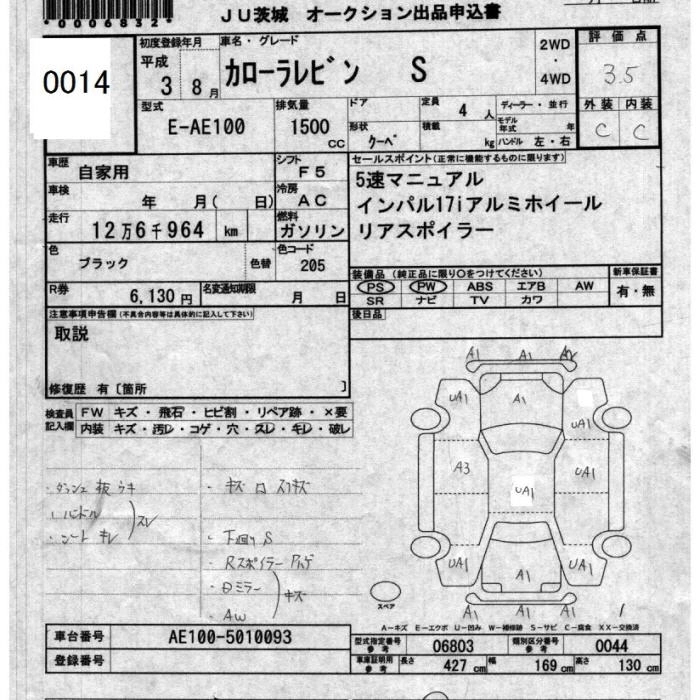 *0006832*
JU茨城 オークション出品申込書
0014
初度登録年月
平成
3 8月
車名・グレード
カローラレビン S
2WD
・
4WD
評価点
3.5
外装 内装
C C
型式
E-AE100
排気量
1500
cc
ドア
定員
4 人
形状
クーペ
積載
kg
ディーラー・並行
モデル年式 年
ハンドル 左・右
車歴
自家用
シフト
F5
車検
年 月( 日)
冷房
AC
走行
12万6千964 km
燃料
ガソリン
色
ブラック
色替
色コード
205
R券
6,130円
名変通知期限
月 日
セールスポイント(正常に機能するものに限ります)
5速マニュアル
インパル17iアルミホイール
リアスポイラー
装備品 (純正品に限り○をつけてください)
PS PW ABS エアB AW
SR ナビ TV カワ
新車保証書
有・無
後日品
注意事項申告欄(不具合内容等は具体的に記入して下さい)
取説
修復歴 有〔箇所 〕
検査員
記入欄
FW キズ・飛石・ヒビ割・リペア跡・×要
内装 キズ・汚レ・コゲ・穴・スレ・キレ・破レ
・ハンドル
スレ
・シート キレ
・下廻りS
・Rスポイラー
・ミラー
キズ
・AW
A1 A1
UA1 A1 UA1
A3 UA1 UA1
UA1 A1 UA1
A1 A1 A1
スペア
A-キズ E-エクボ U-凹み W-補修跡 S-サビ C-腐食 XX-交換済
車台番号
AE100-5010093
登録番号
型式指定番号
参考
06803
類別区分番号
参考
0044
車庫証明用
参考
長さ 427 cm
幅 169 cm
高さ 130 cm